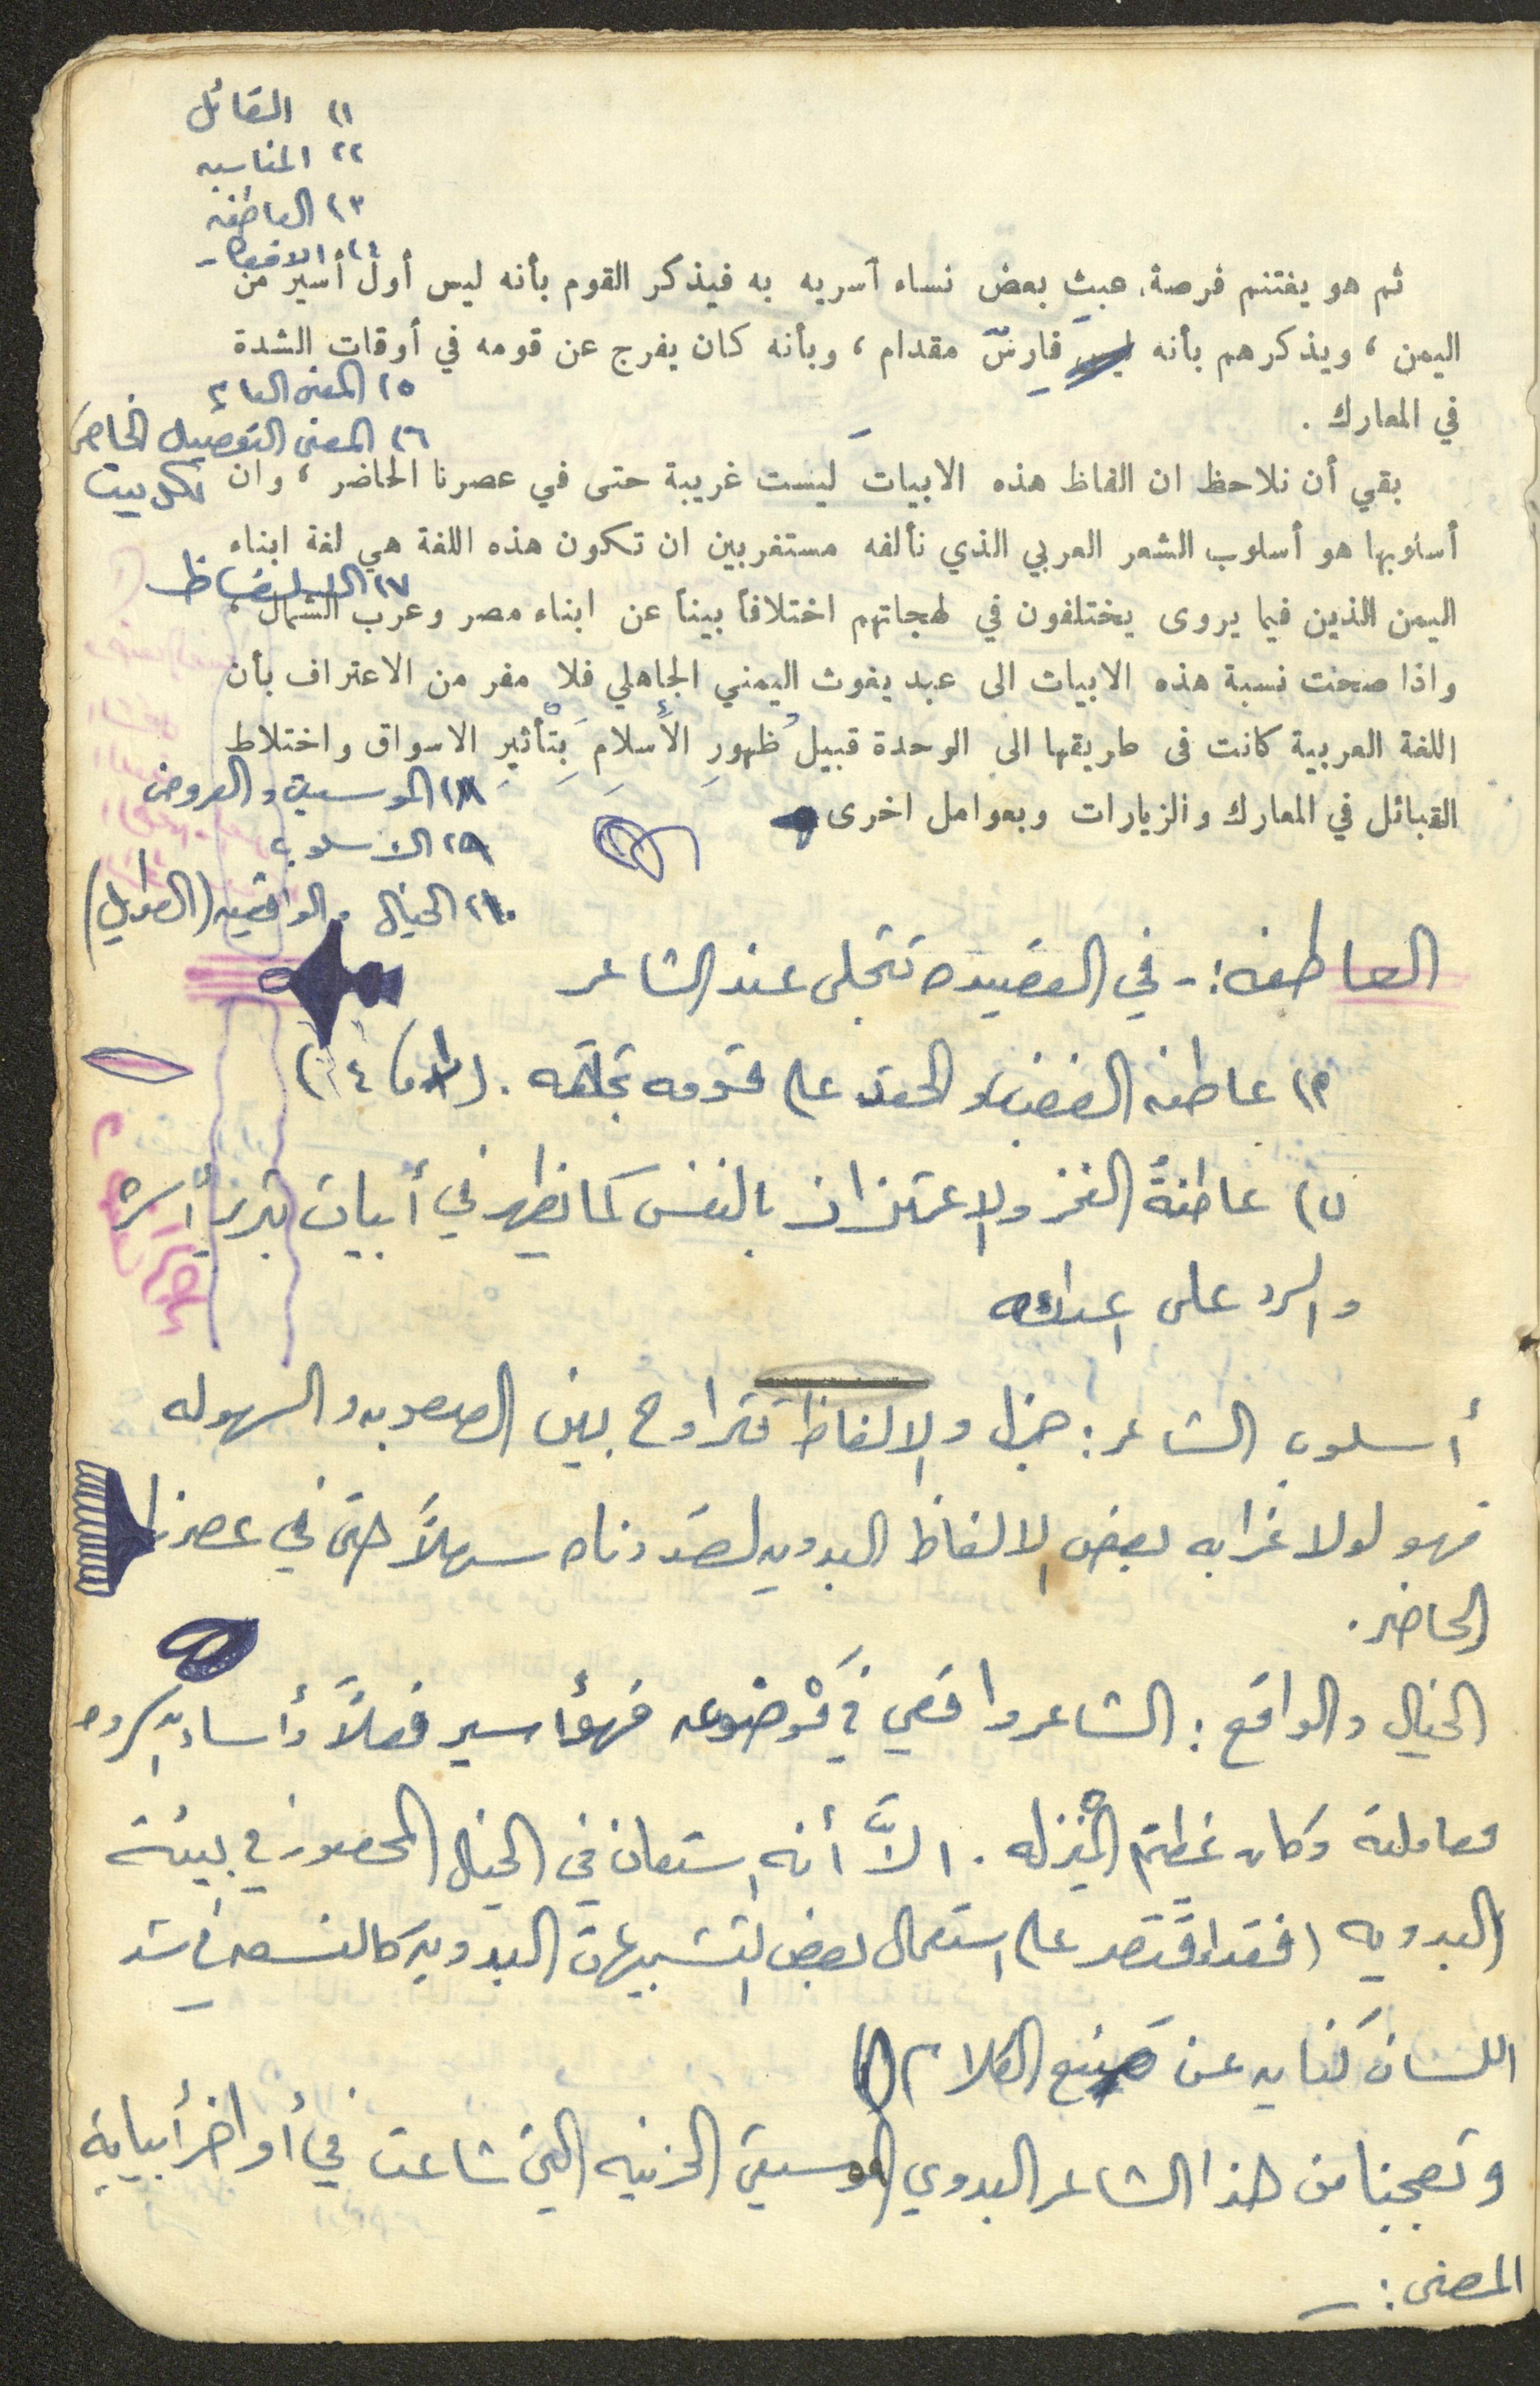 ١) القائل
٢) المناسبه
٣) العاطفه
٤) الافكار
ثم هو يغتنم فرصة، عبث بعض نساء آسريه به فيذكر القوم بأنه ليس أول أسير من
اليمن ، ويذكرهم بأنه فارس مقدام ، وبأنه كان يفرج عن قومه في أوقات الشدة
٥) المعنى العام
في المعارك .
٦) المعنى التفصيلي الخاص
لكل بيت
بقي أن نلاحظ ان الفاظ هذه الابيات ليست غريبة حتى في عصرنا الحاضر ، وان
أسلوبها هو أسلوب الشعر العربي الذي نألفه مستغربين ان تكون هذه اللغة هي لغة ابناء
٧) الالفاظ
اليمن الذين فيما يروى يختلفون في لهجاتهم اختلافاً بيناً عن ابناء مصر وعرب الشمال ،
واذا صحت نسبة هذه الابيات الى عبد يغوث اليمني الجاهلي فلا مفر من الاعتراف بأن
اللغة العربية كانت في طريقها الى الوحدة قبيل ظهور الأسلام بتأثير الاسواق واختلاط
٨) الموسيقى والعروض
القبائل في المعارك والزيارات وبعوامل اخرى
٩) الاسلوب
١٠) الخيال والواقعيه (الطويل)
العاطفه :- في القصيده تتجلى عند الشاعر
١) عاطفه الغضب والحقد على قومه
ب) عاطفةُ الفخر والاعتزاز بالنفس كما نظهر في أبيات تبرير أسره
والرد على اعدائه
أسلوب الشاعر : جزل والالفاظ تتراوح بين الصعوبه والسهوله
فهو لولا غرابه بعض الالفاظ البدويه لعددناه سهلاً حتى في عصرنا
الحاضر .
الخيال والواقع : الشاعر واقعي في موضوعه فهو أسير فعلاً وأساء آسروه
معاملته وكان عظيم المنزله . الاَّ أنه استعان في الخيال المحصور في بيئته
البدويه (فقد اقتصر على استعمال بعض التشبيهات البدويه كالنسعه في شد
اللسان كنايه عن منع الكلام)
وتعجبنا من هذا الشاعر البدوي الموسيقى الحزينه التي شاعت في أواخر أبياته
المعنى :-